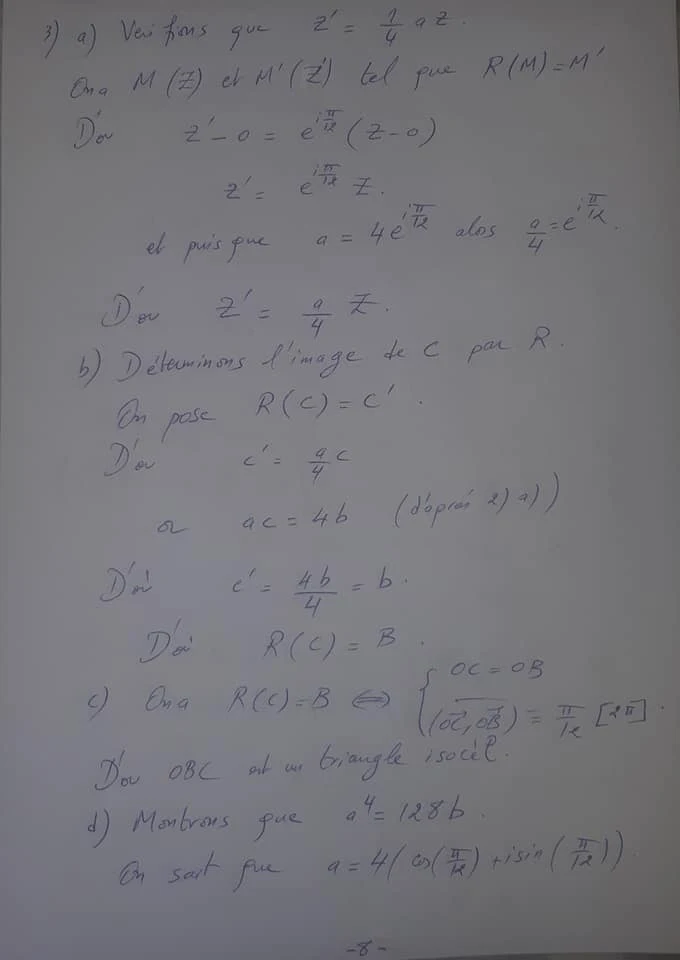 3) a) Verifions que z' = 1/4 a z.
On a M(Z) et M'(Z') tel que R(M)=M'
D'ou z'-0 = e^{iπ/12} (z-0)
z' = e^{iπ/12} z.
et puis que a = 4e^{iπ/12} alos a/4 = e^{iπ/12}.
D'ou z' = a/4 z.
b) Déterminons l'image de C par R.
On pose R(C) = C'.
D'ou c' = a/4 c
or ac = 4b (d'après 2) a))
D'où c' = 4b/4 = b.
D'où R(C) = B.
c) On a R(C)=B ⟺ { OC = OB
(OC, OB) ≡ π/12 [2π].
D'ou OBC est un triangle isocèl.
d) Montrons que a^4 = 128b.
On sait que a = 4(cos(π/12) + i sin(π/12)).
-8-